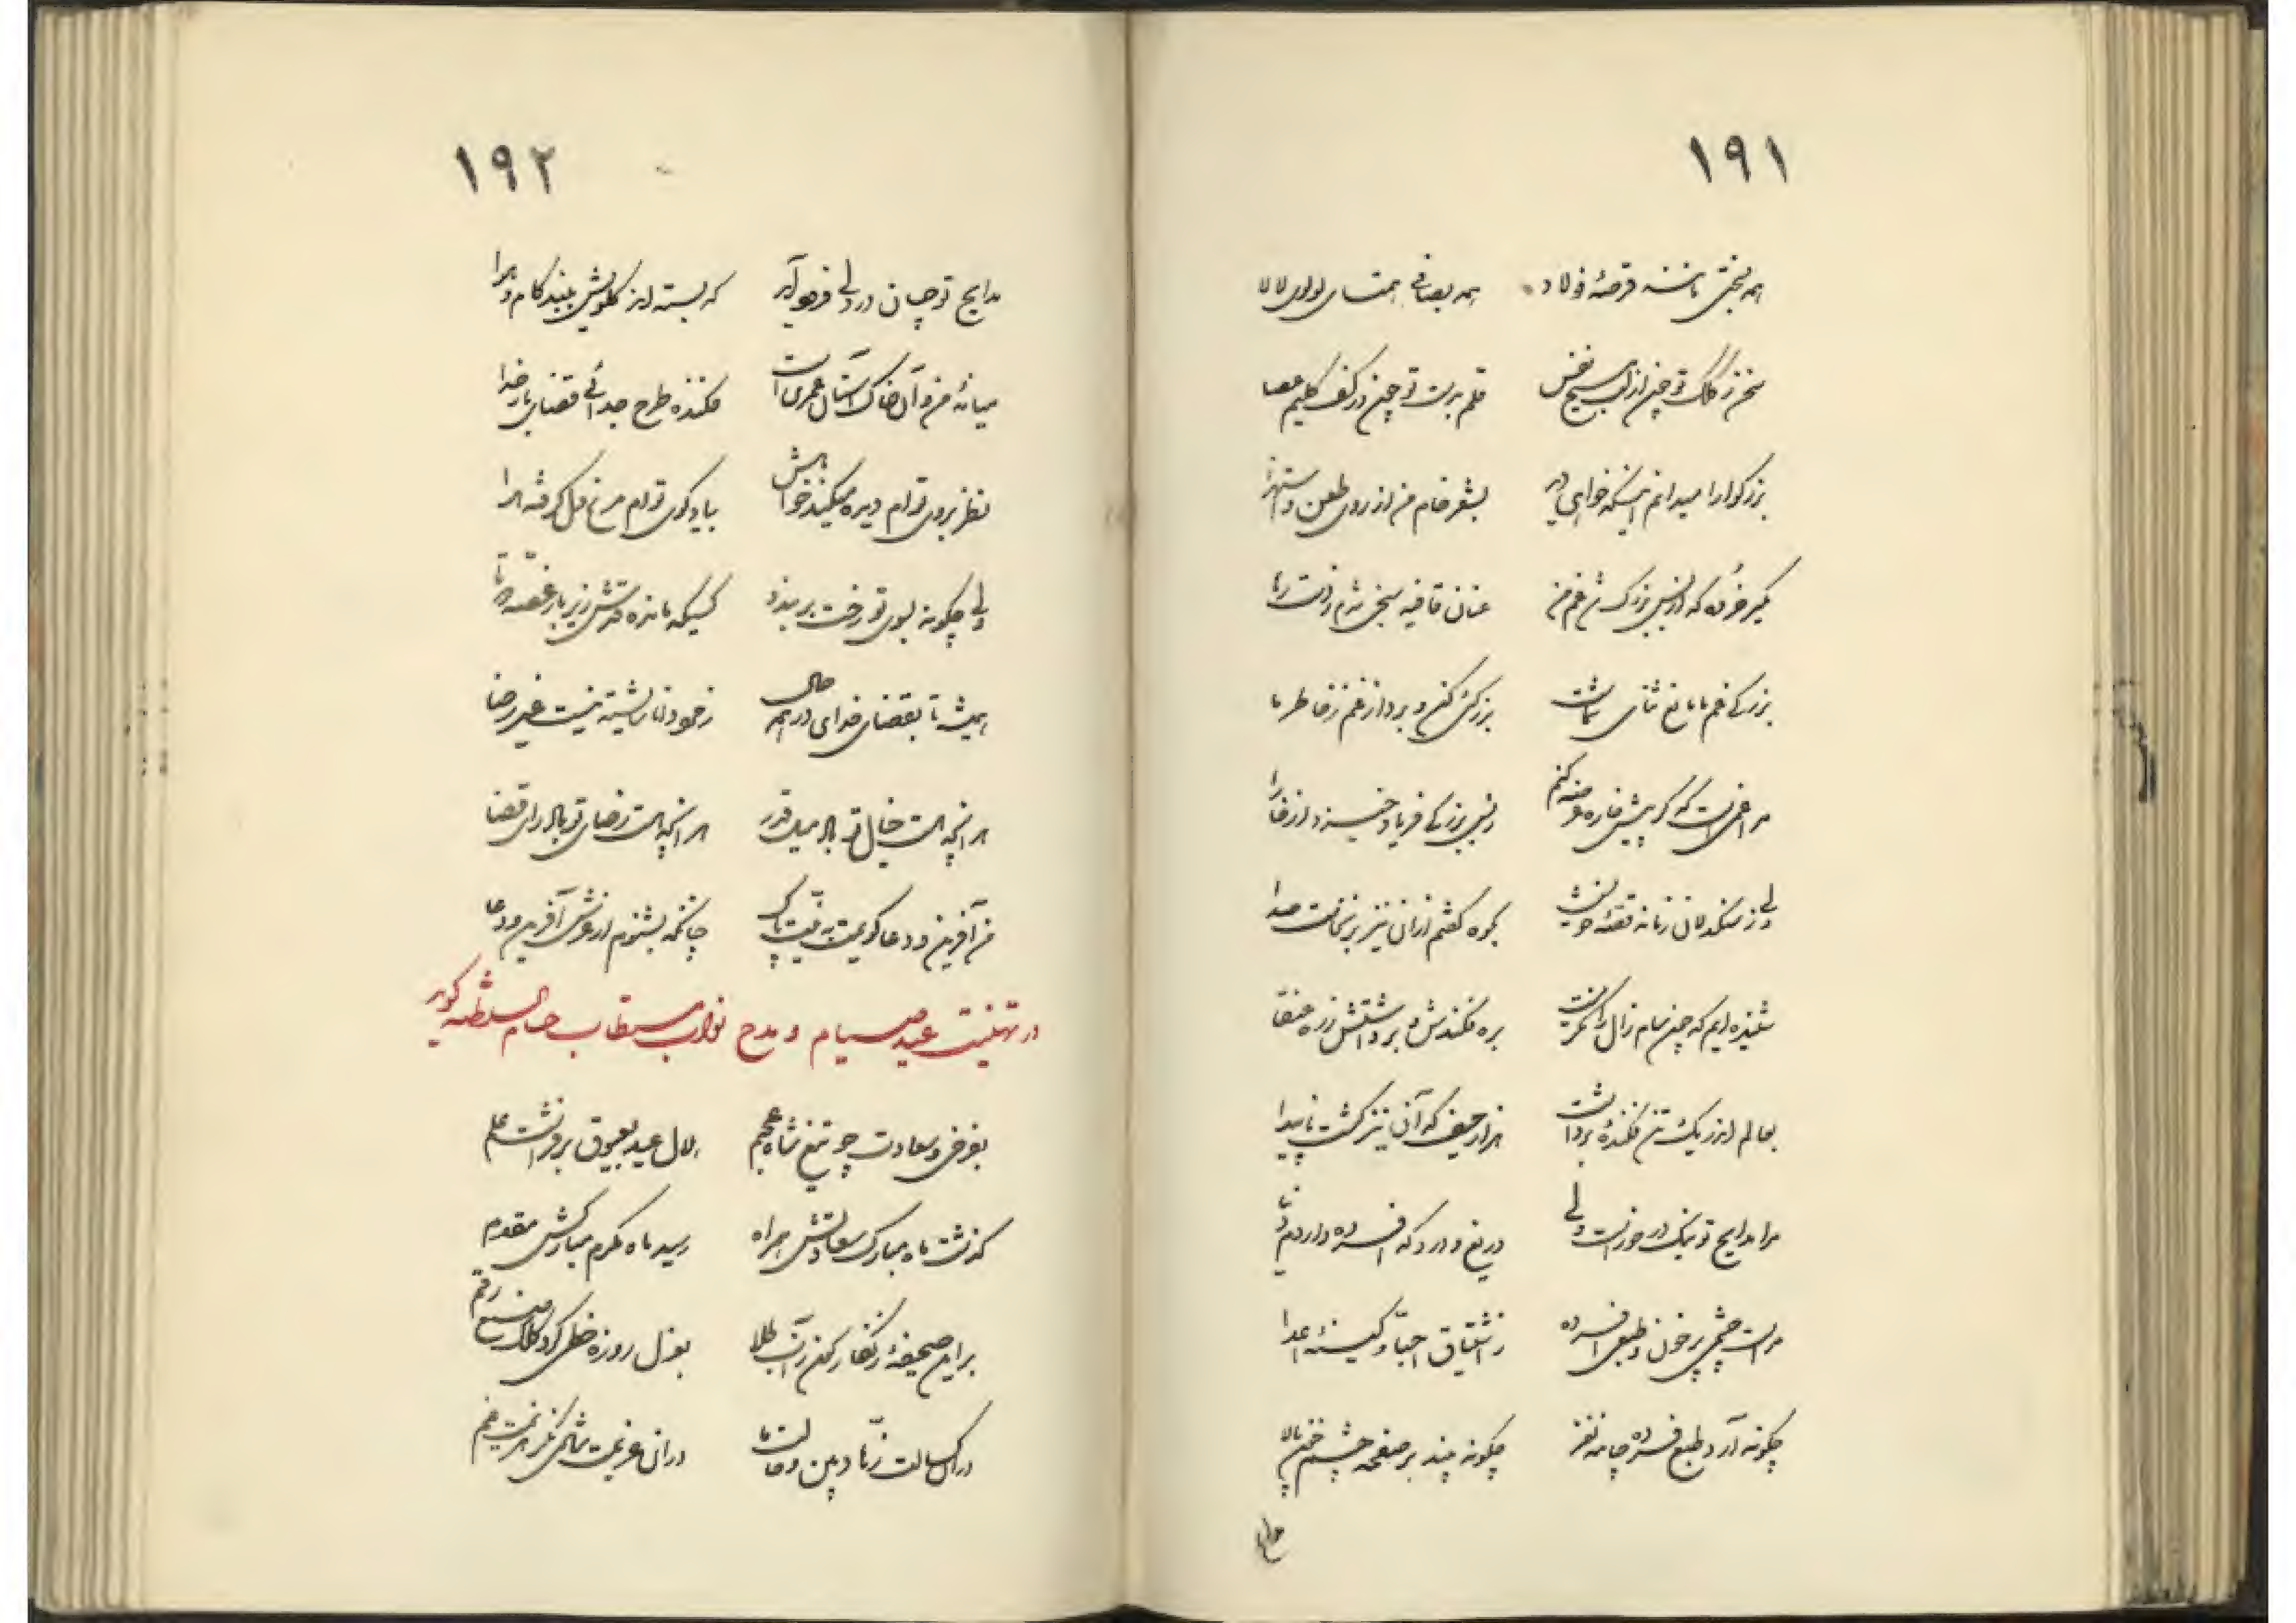 ۱۹۱
همه بسختی مانند قرصهٔ فولاد همه بصافی همتای لولوی لالا
سخن ز کلک تو چون از لب مسیح نفس قلم بدست تو چون در کف کلیم عصا
بزرگوارا میدانم اینکه خواهی دید بشعر خام من از روی طعن و استهزا
مگیر خرده که از بس بزرگ شد غم من عنان قافیه سنجی شدم ز دست رها
بزرگی غم ما مانع ثنای شماست بزرگی کن و بردار غم ز خاطر ما
مرا غمی است که گر پیش خاره عرضه کنم ز بس بزرگی فریاد خیزد از خارا
ولی ز سنگدلان زمانه قصهٔ خویش بکوه گفتم ازان نیز برنخاست صدا
شنیده‌ایم که چون سام زال را نگریست بره فکندش و برداشتش ز ره عنقا
بعالم اندر یک تن فکنده برداشت هزار حیف که آن نیز گشت ناپیدا
مرا مدایح تو نیک در خور است ولی دریغ و درد که افسرده دارد
مراست چشمی پر خون و طبعی افسرده ز اشتیاق احبا و کینهٔ اعدا
چگونه آرد طبع فسرده چامه نغز چگونه بیند بر صفحه چشم خون پالا
۱۹۲
مدایح تو چسان در ولی فرو آید که بسته اند گلویش ببند کام و هوا
میانهٔ من و آن خاک آستان عمری است فکنده طرح جدائی قضای بار خدا
نظر بروی توام دیده میکند خواهش بیاد کوی توام مرغ دل گرفته هوا
ولی چگونه بسوی تو رخت بربندد کسیکه مانده تنش زیر بار غصه
همیشه تا بقضای خدای در همه حال ز خود نمائی شایسته نیست غیر رضا
هر آنچه هست خیال تو باد میل قدر هر آنچه هست رضای تو باد رای قضا
من آفرین و دعا گویمت به نیت پاک چنانکه بشنوم از عرش آفرین و دعا
در تهنیت عید صیام و مدح نواب مستطاب حسام السلطنه گوید
بفرخی و سعادت چو تیغ شاه عجم هلال عید بعیوق برفراشت علم
گذشت ماه مبارک سعادتش همراه رسید ماه مکرم مبارکش مقدم
برین صحیفهٔ زنگار گون ز آب طلا بعزل روزه خطی کرد کلک صنع رقم